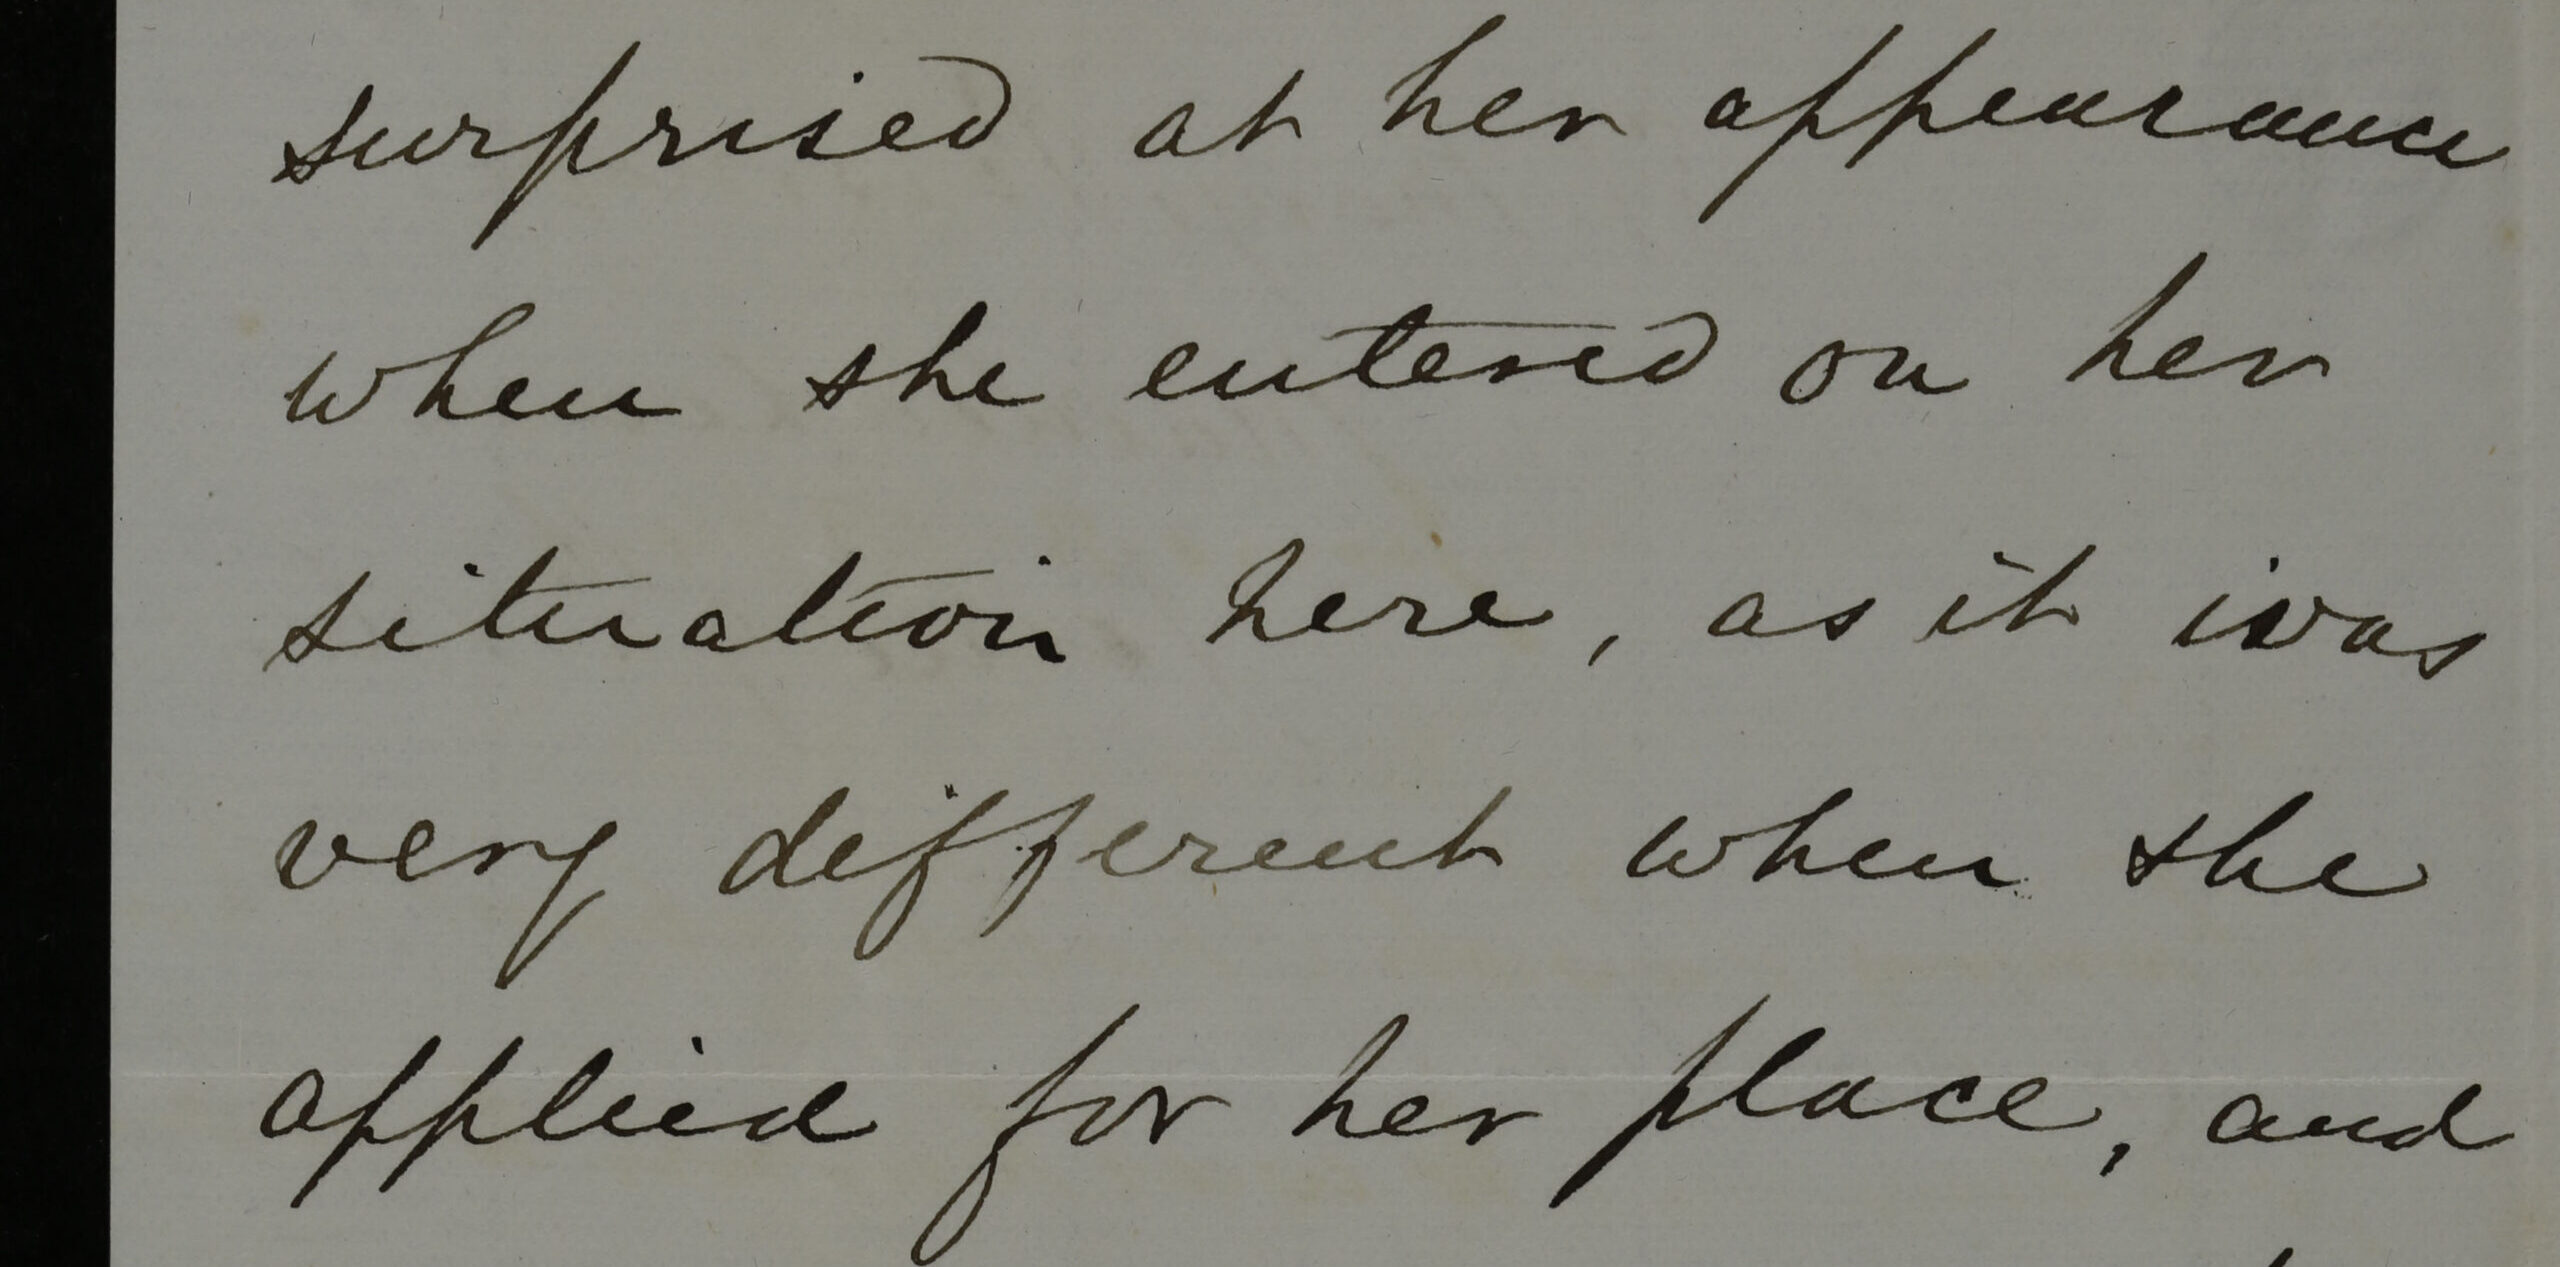 surprised at her appearance
when she entered on her
situation here, as it was
very different when she
applied for her place, and